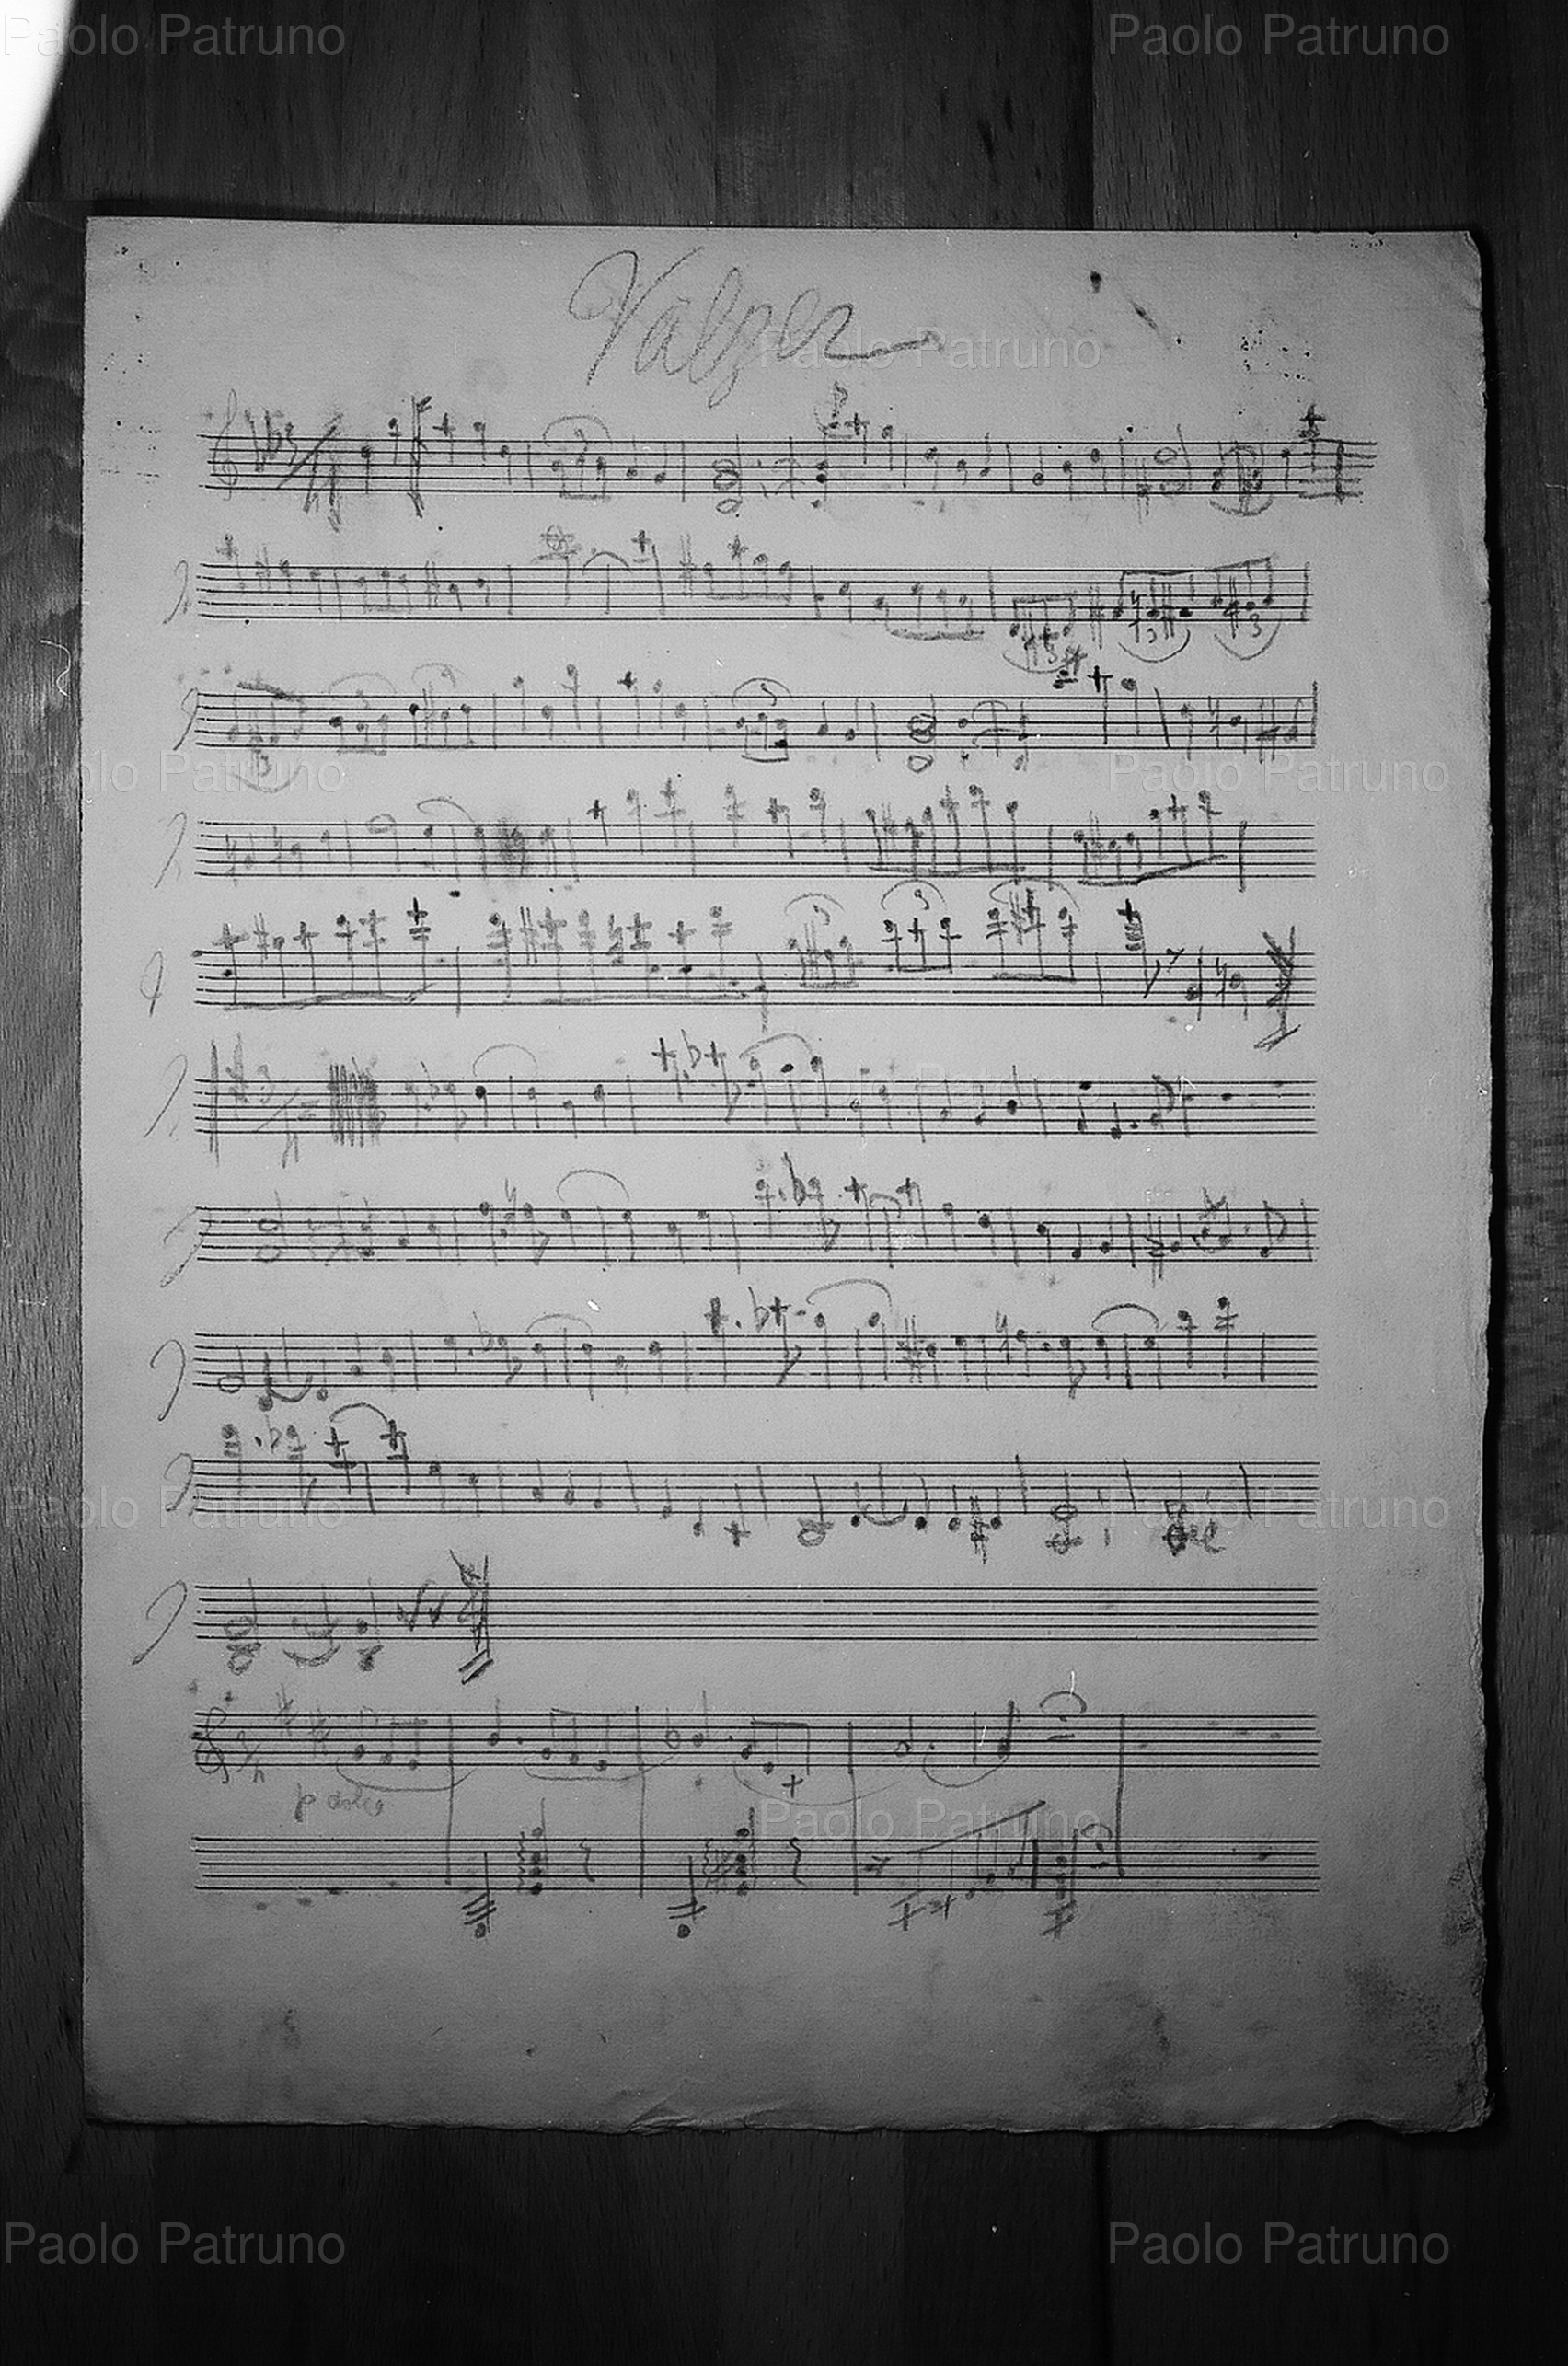 Paolo Patruno Paolo Patruno
Valzer
Paolo Patruno
3
3
3
3
3
3
Paolo Patruno Paolo Patruno
3
3
3
Paolo Patruno
Paolo Patruno Paolo Patruno
p dolce
Paolo Patruno
Paolo Patruno Paolo Patruno